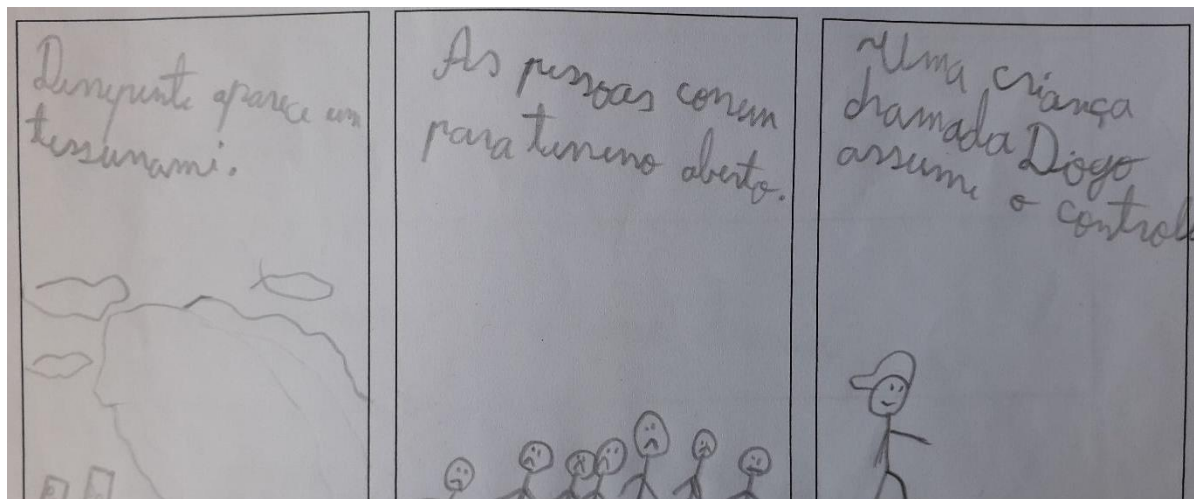 Derrepente aparece um
tessunami.
As pessoas correm
para terreno aberto.
Uma criança
chamada Diogo
assume o controle